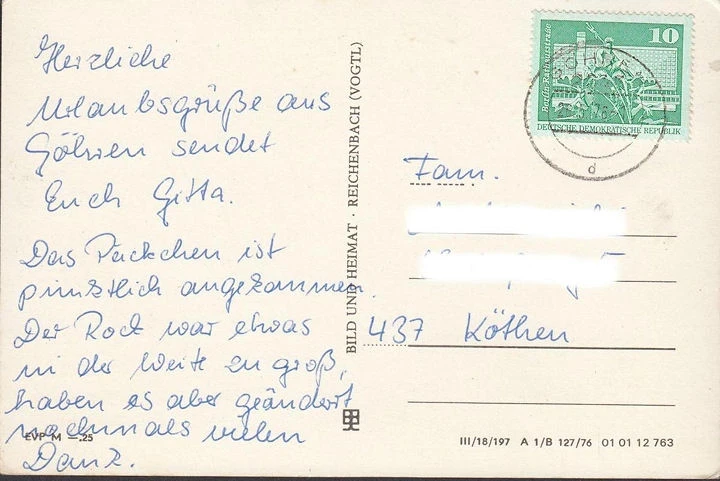 Herzliche
Urlaubsgrüße aus
Göhren sendet
Euch Gitta.
Das Päckchen ist
pünktlich angekommen.
Der Rock war etwas
in der Weite zu groß,
haben es aber geändert
nochmals vielen
Dank.
EVP M —.25
BILD UND HEIMAT · REICHENBACH (VOGTL)
10
Berlin, Rathausstraße
DEUTSCHE DEMOKRATISCHE REPUBLIK
d
Fam.
437 Köthen
III/18/197 A 1/B 127/76 01 01 12 763